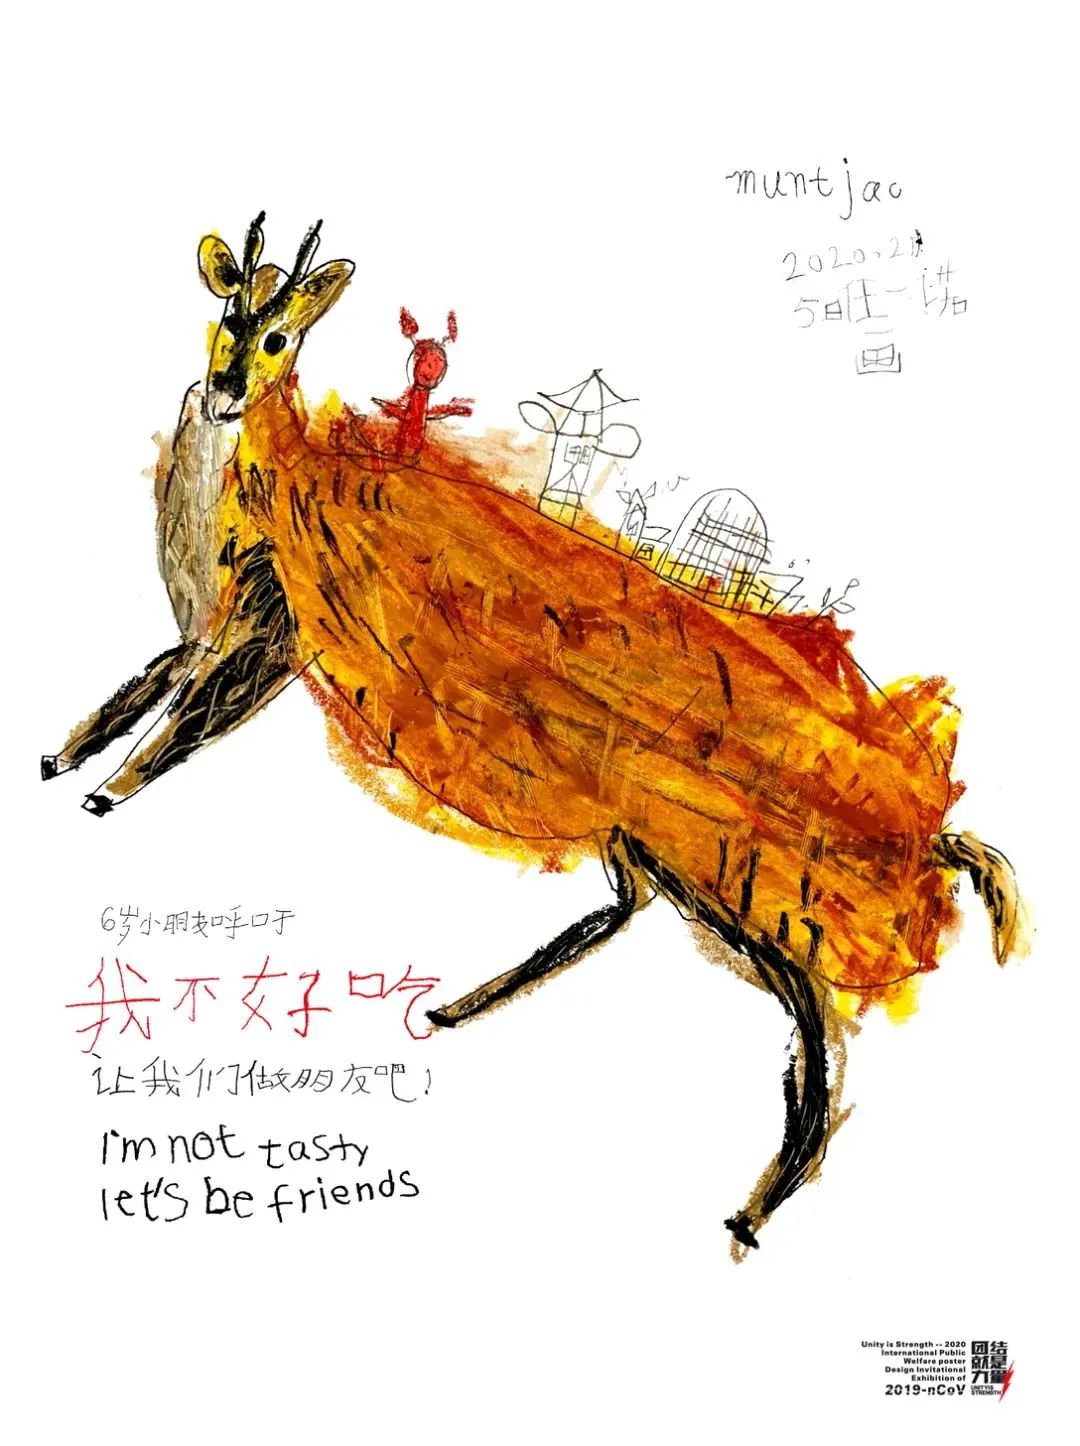 muntjac
2020.2月
5日任一诺
画
6岁小朋友呼吁
我不好吃
让我们做朋友吧!
I'm not tasty
let's be friends
Unity is Strength -- 2020
International Public
Welfare poster
Design Invitational
Exhibition of
2019-nCoV
团结
就是
力量
UNITY IS
STRENGTH